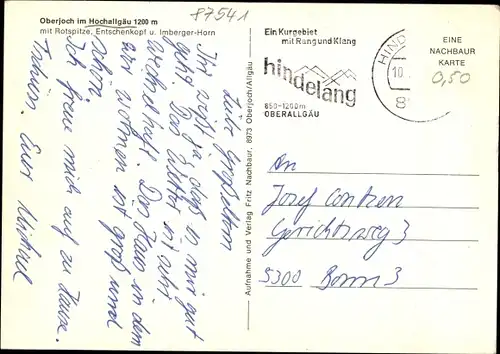 Oberjoch im Hochallgäu 1200 m
mit Rotspitze, Entschenkopf u. Imberger-Horn
87541
Liebe Großeltern
Ihr wißt ja daß es mir gut
geht. Das Wetter ist sehr
wechselhaft. Das Haus in dem
wir wohnen ist groß und
schön.
Ich freue mich auf zu Hause.
Tschüss. Euer Michael
Aufnahme und Verlag Fritz Nachbaur, 8973 Oberjoch/Allgäu
Ein Kurgebiet
mit Rang und Klang
hindelang
850-1200m
OBERALLGÄU
HIND
10.
8
EINE
NACHBAUR
KARTE
0,50
An
Josef Contzen
Gerichtsweg 3
5300 Bonn 3